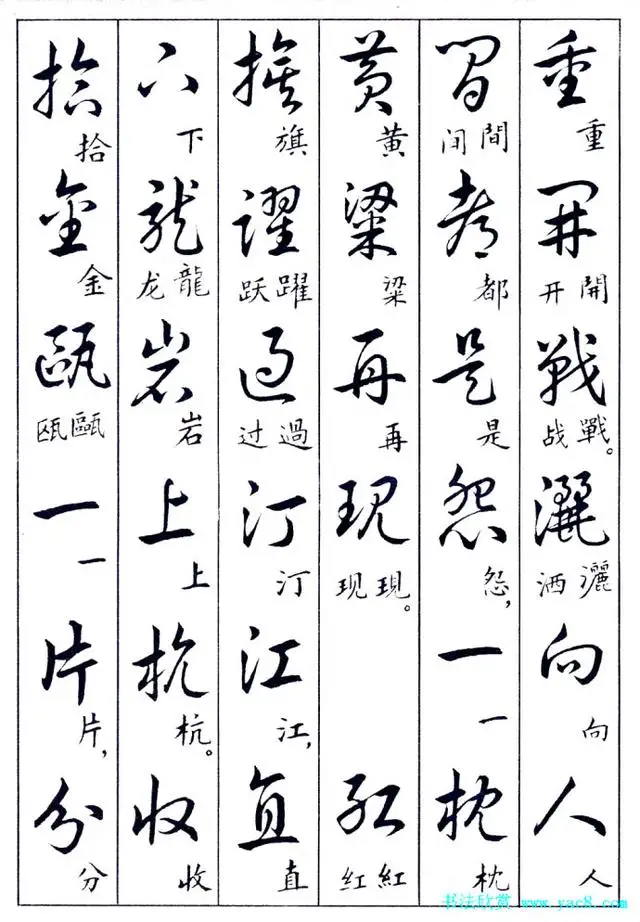 重 重 開 開 开 戰 戰。 战 灑 灑 洒 向 向 人 人
間 間 间 都 都 是 是 怨 怨, 一 一 枕 枕
黄 黄 粱 粱 再 再 現 現。 现 紅 紅 红
旗 旗 躍 躍 跃 過 過 过 汀 汀 江 江, 直 直
下 下 龍 龍 龙 岩 岩 上 上 杭 杭。 收 收
拾 拾 金 金 甌 甌 瓯 一 一 片 片, 分 分
书法欣赏 www.yac8.com